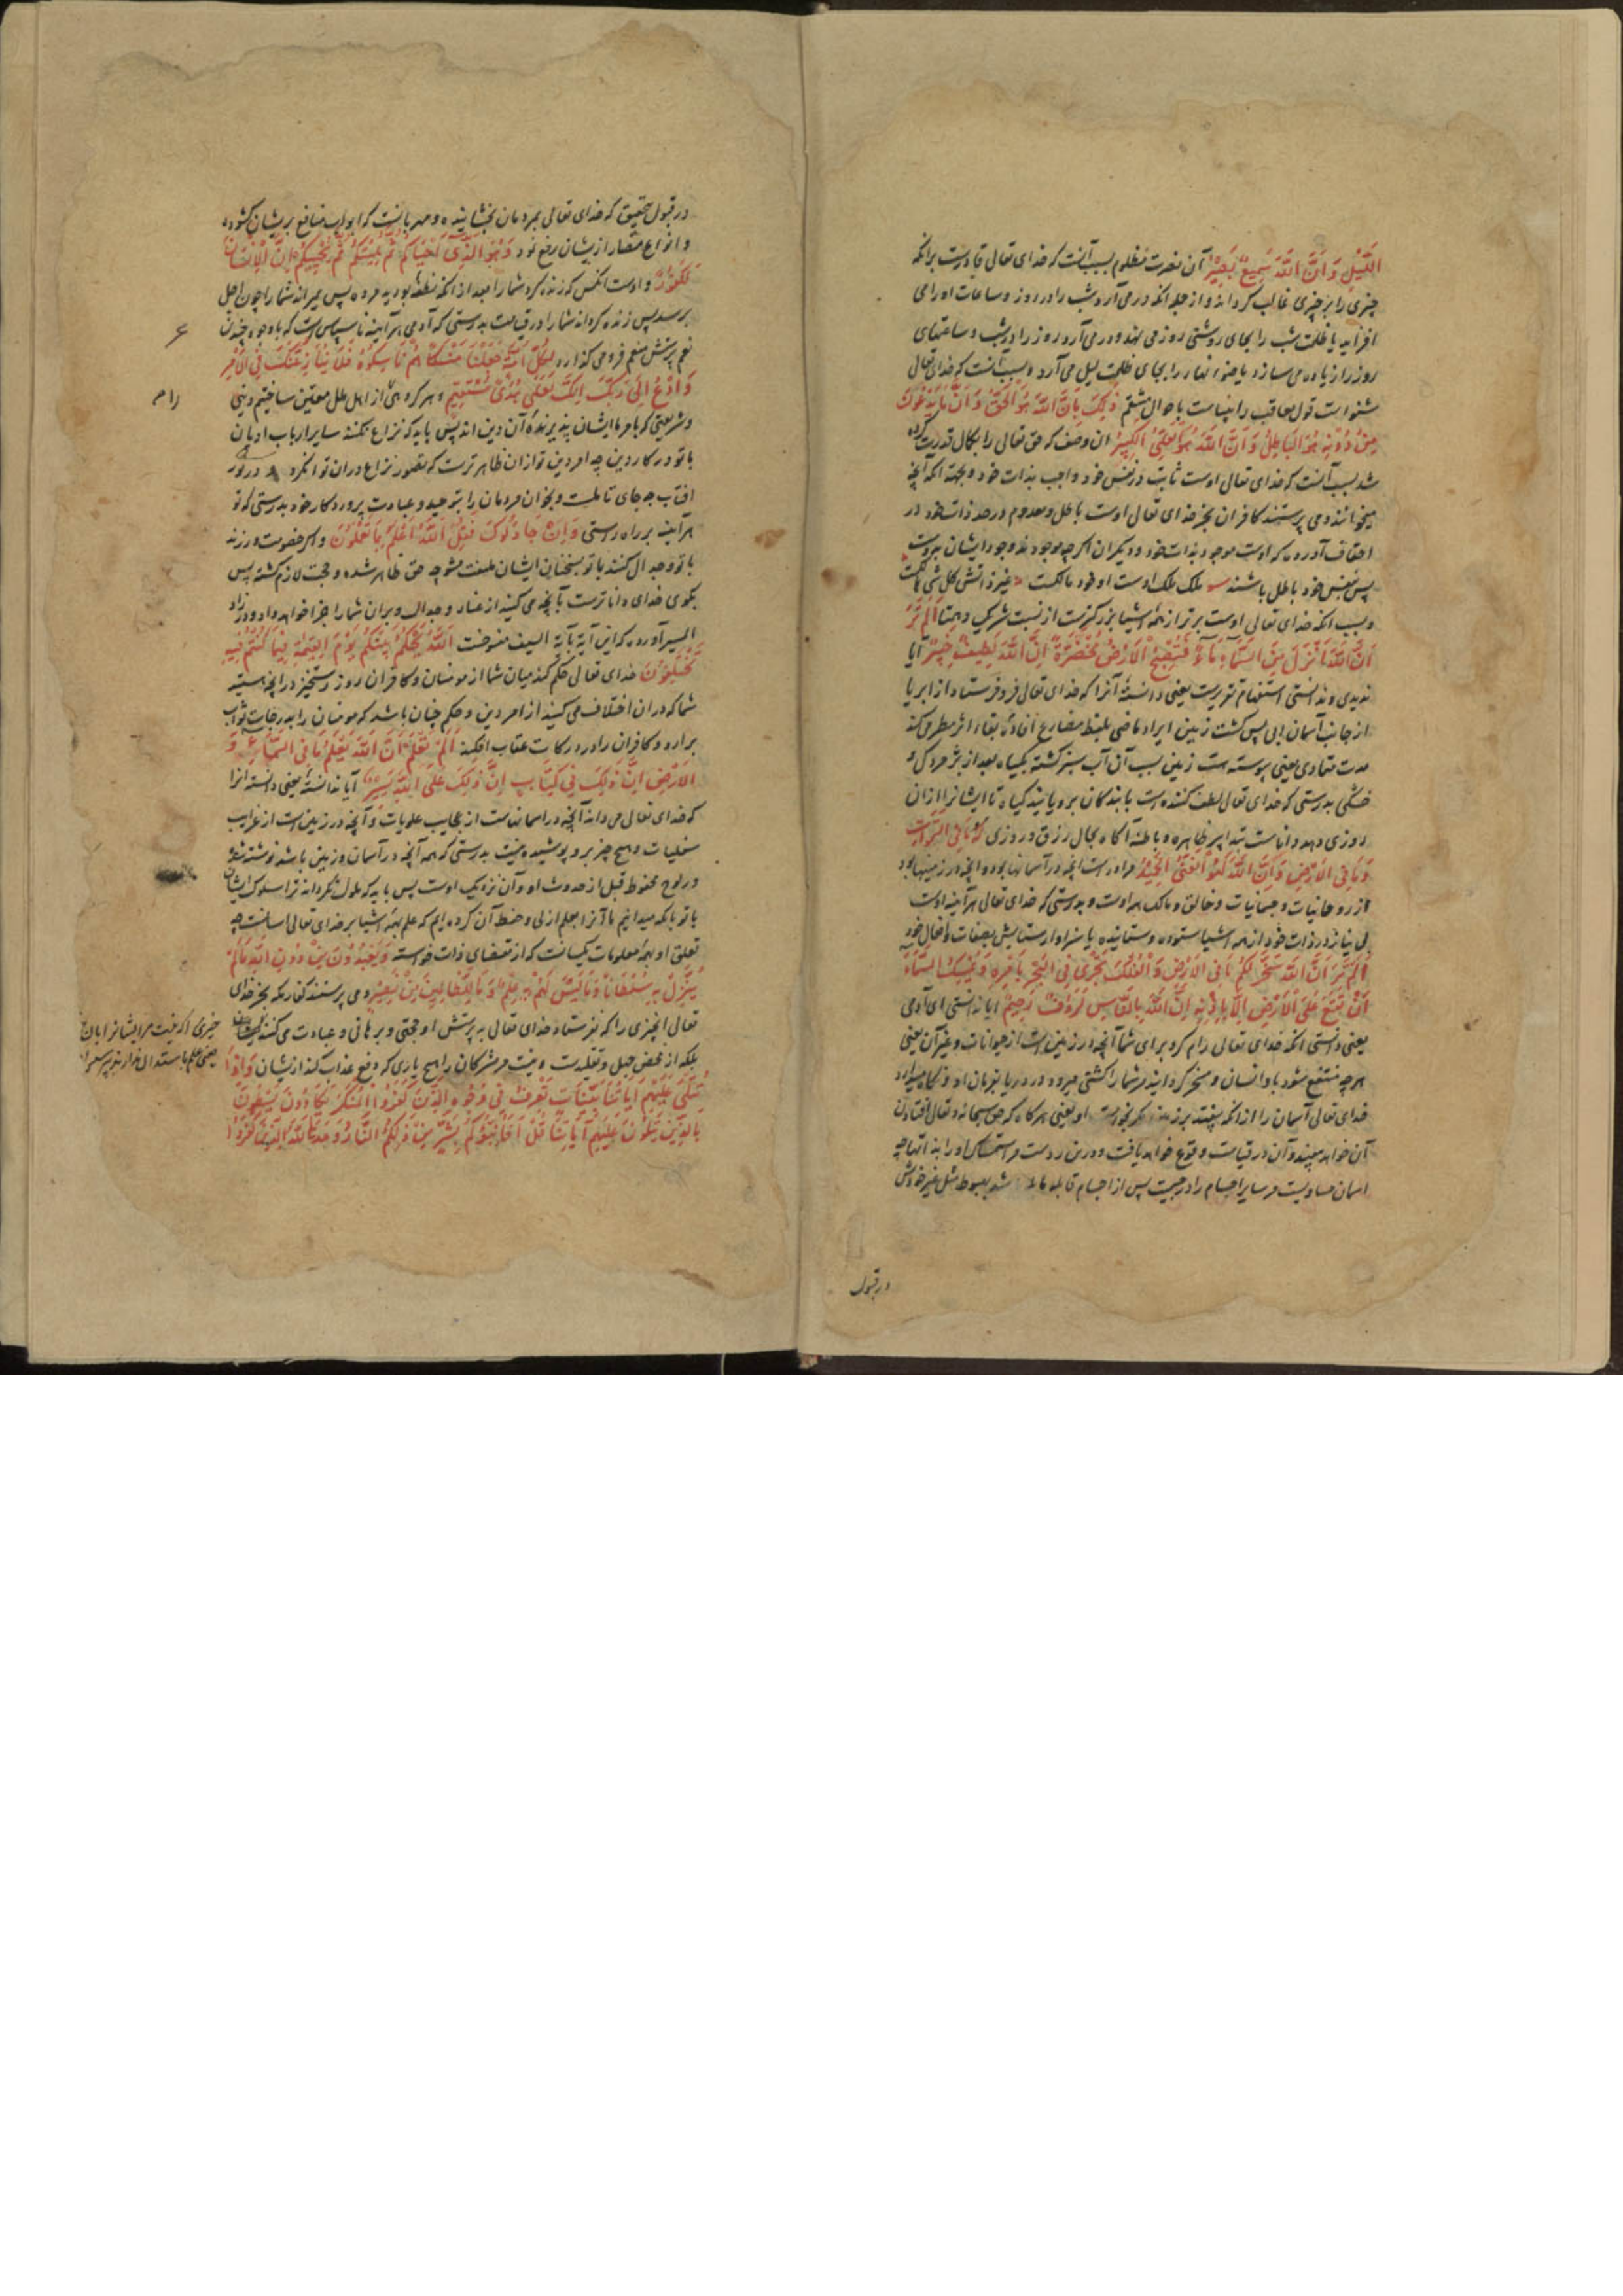 اللَّيْلِ وَأَنَّ اللَّهَ سَمِيعٌ بَصِيرٌ آن نصرت مظلوم بسبب آنست که خدای تعالی قادرست برانکه
چیزی را بر چیزی غالب کرداند و از جمله انکه درمی آرد شب را در روز و ساعات او را می
افزاید یا ظلمت شب را بجای روشنی روز می نهد و درمی آرد روز را در شب و ساعتهای
روز را زیاده می سازد یا ضوء نهار را بجای ظلمت لیل می آرد و بسبب آنست که خدای تعالی
شنواست قول معاقب را بیناست باحوال منتقم ذَلِكَ بِأَنَّ اللَّهَ هُوَ الْحَقُّ وَأَنَّ مَا يَدْعُونَ
مِنْ دُونِهِ هُوَ الْبَاطِلُ وَأَنَّ اللَّهَ هُوَ الْعَلِيُّ الْكَبِيرُ ان وصف که حق تعالی را بکمال قدرت کرده
شد بسبب آنست که خدای تعالی اوست ثابت در نفس خود و واجب بذات خود و بجهة انکه آنچه
میخوانند و می پرستند کافران بجز خدای تعالی اوست باطل و معدوم در حد ذات خود در
احقاف آورده که اوست موجود بذات خود و دیکران اکرچه موجودند وجود ایشان بدوست
پس بنفس خود باطل باشند ملک ملک اوست او خود مالکست غیر ذاتش کل شی هالکست
و بسبب انکه خدای تعالی اوست برتر از همه اشیا بزرکترست از نسبت شریک و همتا أَلَمْ تَرَ
أَنَّ اللَّهَ أَنْزَلَ مِنَ السَّمَاءِ مَاءً فَتُصْبِحُ الْأَرْضُ مُخْضَرَّةً إِنَّ اللَّهَ لَطِيفٌ خَبِيرٌ آیا
ندیدی و ندانستی استفهام تقریرست یعنی دانسته آنرا که خدای تعالی فرو فرستاد از ابر یا
از جانب آسمان ابی پس کشت زمین ایراد ماضی بلفظ مضارع افاده بقاء اثر مطر می کند
مدت متمادی یعنی پیوسته است زمین بسبب آن آب سبز کشته بکیاه بعد از پژمردکی و
خشکی بدرستی که خدای تعالی لطف کننده است با بندکان برویانیدن کیاه تا ایشانرا ازان
روزی دهد و داناست بتدابیر ظاهره و باطنه آکاه بحال رزق و روزی لَهُ مَا فِي السَّمَاوَاتِ
وَمَا فِي الْأَرْضِ وَإِنَّ اللَّهَ لَهُوَ الْغَنِيُّ الْحَمِيدُ مراوراست انچه در آسمانها بود و انچه در زمینها بود
از روحانیات و جسمانیات و خالق و مالک همه اوست و بدرستی که خدای تعالی هرآینه اوست
بی نیاز در ذات خود از همه اشیا ستوده و ستاینده یا سزاوار ستایش بصفات و افعال خود
أَلَمْ تَرَ أَنَّ اللَّهَ سَخَّرَ لَكُمْ مَا فِي الْأَرْضِ وَالْفُلْكَ تَجْرِي فِي الْبَحْرِ بِأَمْرِهِ وَيُمْسِكُ السَّمَاءَ
أَنْ تَقَعَ عَلَى الْأَرْضِ إِلَّا بِإِذْنِهِ إِنَّ اللَّهَ بِالنَّاسِ لَرَءُوفٌ رَحِيمٌ ایا ندانستی ای آدمی
یعنی دانستی انکه خدای تعالی رام کرد برای شما آنچه در زمین است از حیوانات و غیر آن یعنی
هرچه منتفع شود باو انسان و مسخر کردانید مر شما را کشتی میرود در دریا بفرمان او و نکاه میدارد
خدای تعالی آسمان را از انکه بیفتد بر زمین مکر بخواست او یعنی هرکاه که حق سبحانه و تعالی افتادن
آن خواهد بیفتد و آن در قیامت وقوع خواهد یافت و درین رد است مر استمساک او را بذاتها چه
اسمان مساویست مر سایر اجسام را در جسمیت پس از اجسام قابله مایل شد بهبوط مثل غیر خودش
در قبول
در قبول تحقیق که خدای تعالی بمردمان بخشاینده و مهربانست که ابواب منافع بریشان کشوده
و انواع مضار ازیشان رفع نمود وَهُوَ الَّذِي أَحْيَاكُمْ ثُمَّ يُمِيتُكُمْ ثُمَّ يُحْيِيكُمْ إِنَّ الْإِنْسَانَ
لَكَفُورٌ و اوست انکس که زنده کرد شما را بعد از انکه نطفه بودید مرده پس بمیراند شما را چون اجل
برسد پس زنده کرداند شما را در قیامت بدرستی که آدمی هرآینه ناسپاس است که باوجود چندین
نعم پرستش منعم فرو می کذارد لِكُلِّ أُمَّةٍ جَعَلْنَا مَنْسَكًا هُمْ نَاسِكُوهُ فَلَا يُنَازِعُنَّكَ فِي الْأَمْرِ
وَادْعُ إِلَى رَبِّكَ إِنَّكَ لَعَلَى هُدًى مُسْتَقِيمٍ و هر کروهی از اهل ملل معین ساختیم دینی
و شریعتی که بامر ما ایشان پذیرنده آن دین اند پس باید که نزاع نکنند سایر ارباب ادیان
باتو در کار دین چه امر دین تو ازان ظاهرترست که تصور نزاع دران توان کرد در نور
افتاب چه جای تاملست و بخوان مردمان را بتوحید و عبادت پروردکار خود بدرستی که تو
هرآینه بر راه راستی وَإِنْ جَادَلُوكَ فَقُلِ اللَّهُ أَعْلَمُ بِمَا تَعْمَلُونَ و اکر خصومت ورزند
باتو و جدال کنند باتو بسخنان ایشان ملتفت مشو چه حق ظاهر شده و حجت لازم کشته پس
بکوی خدای داناترست بآنچه می کنید از عناد و جدال و بران شما را جزا خواهد داد و در زاد
المسیر آورده که این آیة بآیة السیف منسوخست اللَّهُ يَحْكُمُ بَيْنَكُمْ يَوْمَ الْقِيَامَةِ فِيمَا كُنْتُمْ فِيهِ
تَخْتَلِفُونَ خدای تعالی حکم کند میان شما از مومنان و کافران روز رستخیز در انچه هستید
شما که دران اختلاف می کنید از امر دین و حکم چنان باشد که مومنان را بدرجات ثواب
برارد و کافران را در درکات عقاب افکند أَلَمْ تَعْلَمْ أَنَّ اللَّهَ يَعْلَمُ مَا فِي السَّمَاءِ وَ
الْأَرْضِ إِنَّ ذَلِكَ فِي كِتَابٍ إِنَّ ذَلِكَ عَلَى اللَّهِ يَسِيرٌ آیا ندانسته یعنی دانسته انرا
که خدای تعالی می داند آنچه در اسمانست از عجایب علویات و آنچه در زمین است از غرایب
سفلیات و هیچ چیز برو پوشیده نیست بدرستی که همه آنچه در آسمان و زمین باشد نوشته شده
در لوح محفوظ قبل از حدوث او و آن نزدیک اوست پس باید که ملول نکرداند ترا سلوک ایشان
باتو باانکه میدانیم ما آنرا بعلم ازلی و حفظ آن کرده ایم که علم بهمه اشیا بر خدای تعالی اسانست چه
تعلق او بهمه معلومات یکسانست که از مقتضای ذات خواسته وَيَعْبُدُونَ مِنْ دُونِ اللَّهِ مَا لَمْ
يُنَزِّلْ بِهِ سُلْطَانًا وَمَا لَيْسَ لَهُمْ بِهِ عِلْمٌ وَمَا لِلظَّالِمِينَ مِنْ نَصِيرٍ و می پرستند کفار مکه بجز خدای
تعالی انچیزی را که نفرستاد خدای تعالی به پرستش او حجتی و برهانی و عبادت می کنند
چیزی را که نیست مر ایشانرا بان
بلکه از محض جهل و تقلیدست و نیست مر مشرکان را هیچ یاری که دفع عذاب کند ازیشان وَإِذَا
تُتْلَى عَلَيْهِمْ آيَاتُنَا بَيِّنَاتٍ تَعْرِفُ فِي وُجُوهِ الَّذِينَ كَفَرُوا الْمُنْكَرَ يَكَادُونَ يَسْطُونَ
بِالَّذِينَ يَتْلُونَ عَلَيْهِمْ آيَاتِنَا قُلْ أَفَأُنَبِّئُكُمْ بِشَرٍّ مِنْ ذَلِكُمُ النَّارُ وَعَدَهَا اللَّهُ الَّذِينَ كَفَرُوا